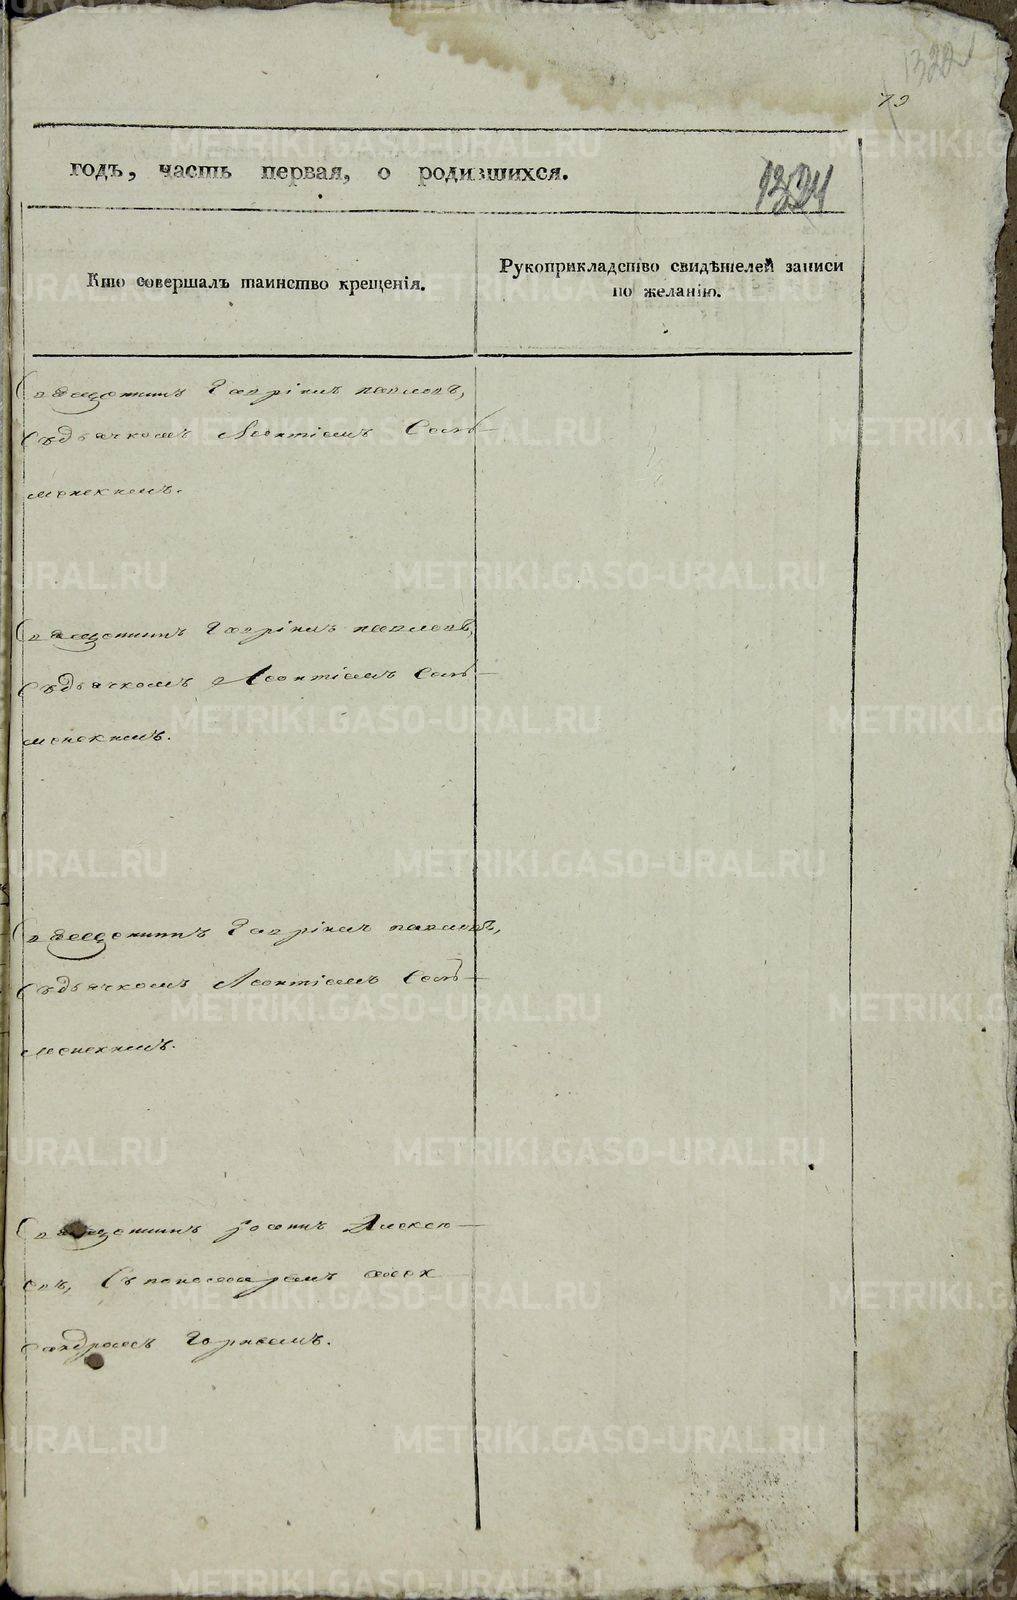 1322
79
годъ, часть первая, о родившихся.
1324
Кто совершалъ таинство крещенія.
Рукоприкладство свидѣтелей записи
по желанію.
Священникъ Гавріилъ павловъ,
Съ дьячкомъ Леонтіемъ
Священникъ Гавріилъ павловъ,
Съ дьячкомъ Леонтіемъ
Священникъ Гавріилъ павловъ,
Съ дьячкомъ Леонтіемъ
Священникъ Іоаннъ Алексѣ-
евъ, Съ пономаремъ алек
сандромъ
METRIKI.GASO-URAL.RU